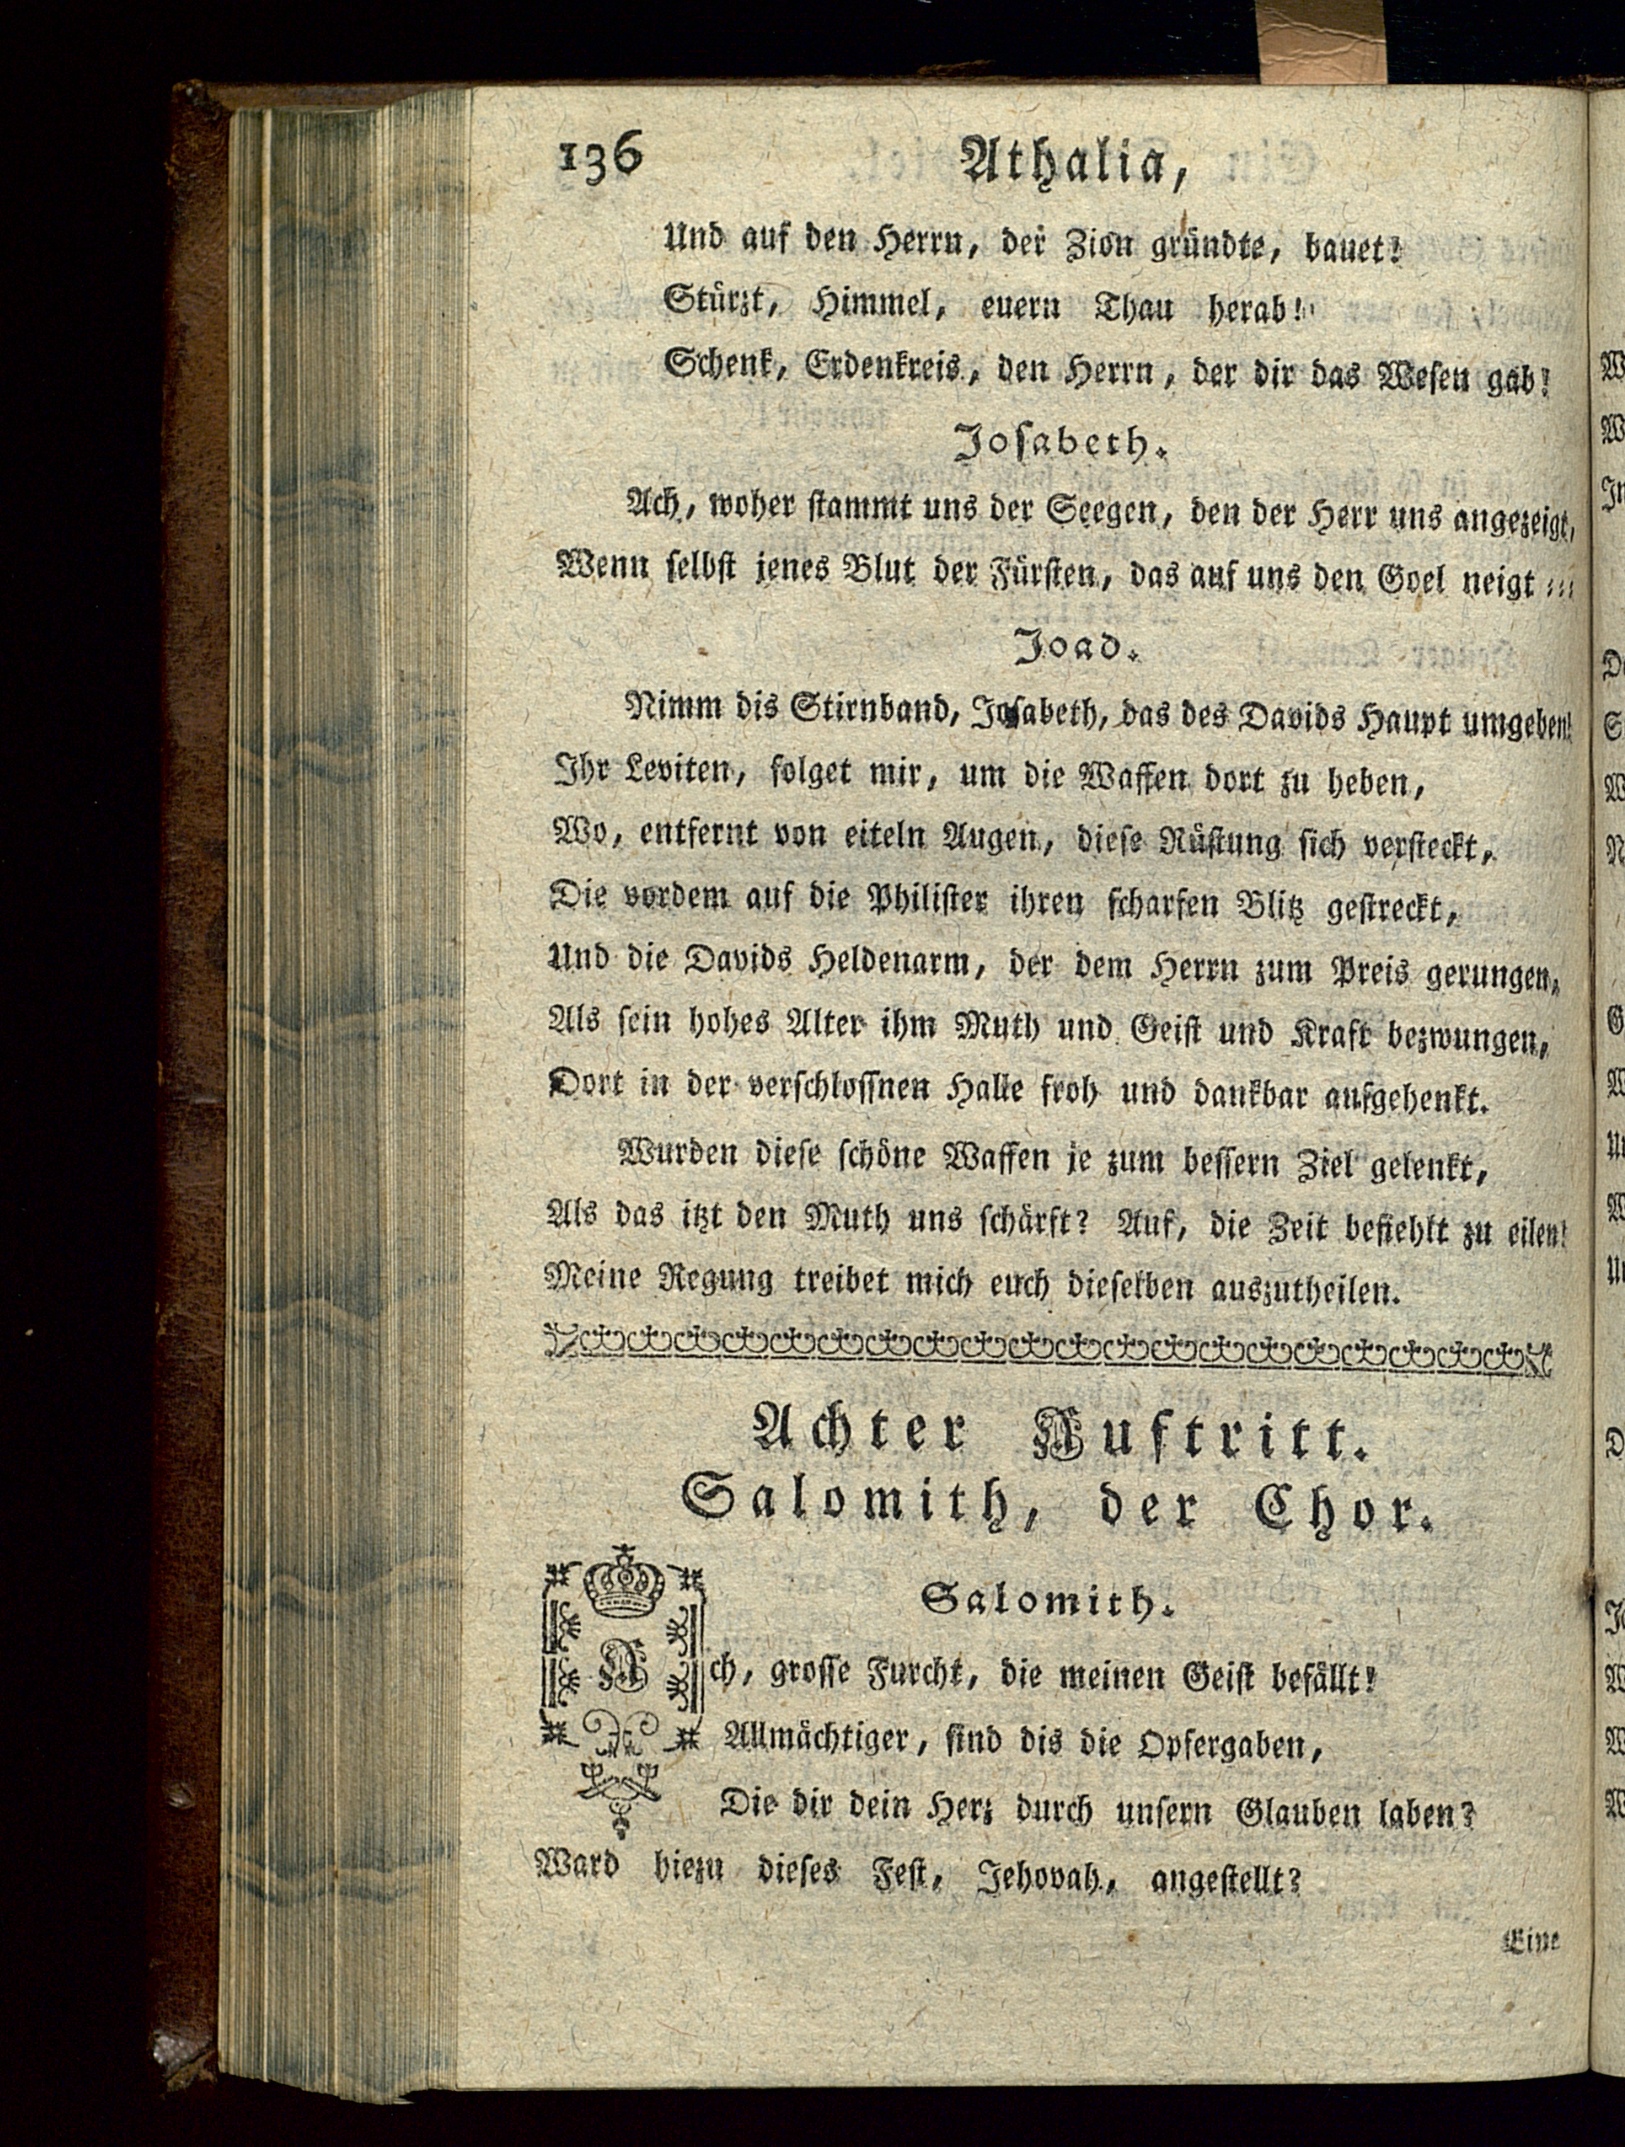 136 Athalia,
Und auf den Herrn, der Zion gründte, bauet!
Stürzt, Himmel, euern Thau herab!
Schenk, Erdenkreis, den Herrn, der dir das Wesen gab!
Josabeth.
Ach, woher stammt uns der Seegen, den der Herr uns angezeigt,
Wenn selbst jenes Blut der Fürsten, das auf uns den Goel neigt ⸗⸗⸗
Joad.
Nimm dis Stirnband, Josabeth, das des Davids Haupt umgeben!
Ihr Leviten, folget mir, um die Waffen dort zu heben,
Wo, entfernt von eiteln Augen, diese Rüstung sich versteckt,
Die vordem auf die Philister ihren scharfen Blitz gestreckt,
Und die Davids Heldenarm, der dem Herrn zum Preis gerungen,
Als sein hohes Alter ihm Muth und Geist und Kraft bezwungen,
Dort in der verschlossnen Halle froh und dankbar aufgehenkt.
Wurden diese schöne Waffen je zum bessern Ziel gelenkt,
Als das itzt den Muth uns schärft? Auf, die Zeit befiehlt zu eilen!
Meine Regung treibet mich euch dieselben auszutheilen.
Achter Auftritt.
Salomith, der Chor.
Salomith.
Ach, grosse Furcht, die meinen Geist befällt!
Allmächtiger, sind dis die Opfergaben,
Die dir dein Herz durch unsern Glauben laben?
Ward hiezu dieses Fest, Jehovah, angestellt?
Eine